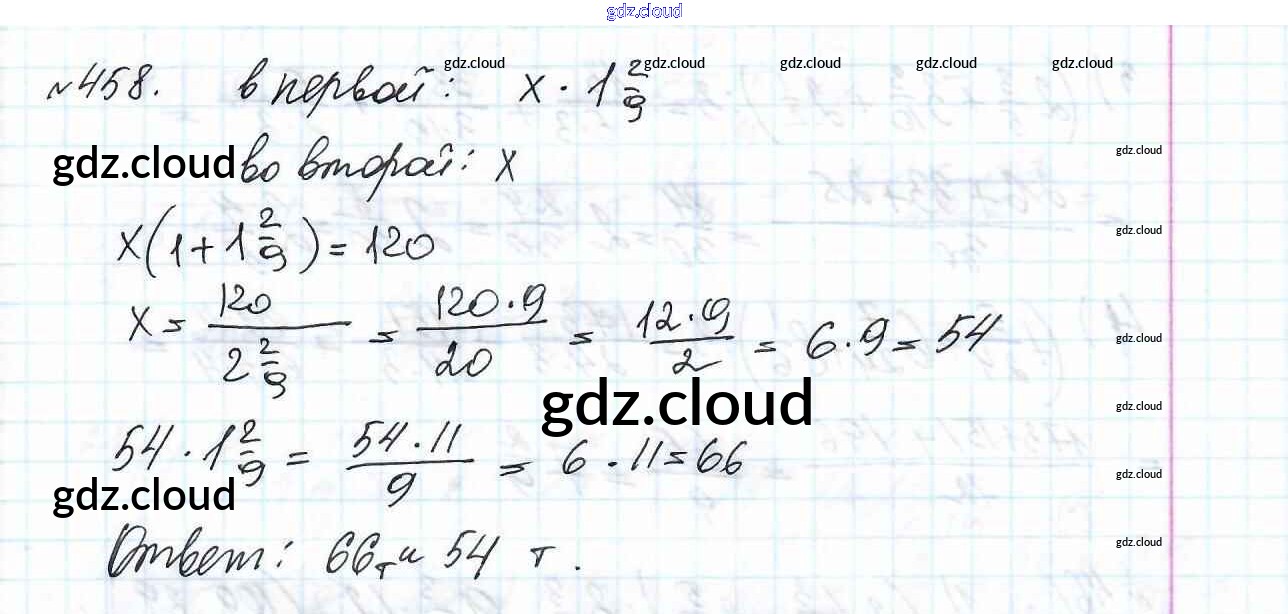 gdz.cloud
№458. в первой: x · 1 2/9 gdz.cloud gdz.cloud gdz.cloud gdz.cloud gdz.cloud
gdz.cloud во второй: x gdz.cloud
x(1 + 1 2/9) = 120 gdz.cloud
x = 120/(2 2/9) = 120·9/20 = 12·9/2 = 6·9 = 54 gdz.cloud
gdz.cloud gdz.cloud
54 · 1 2/9 = 54·11/9 = 6 · 11 = 66 gdz.cloud
gdz.cloud
Ответ: 66т и 54 т. gdz.cloud